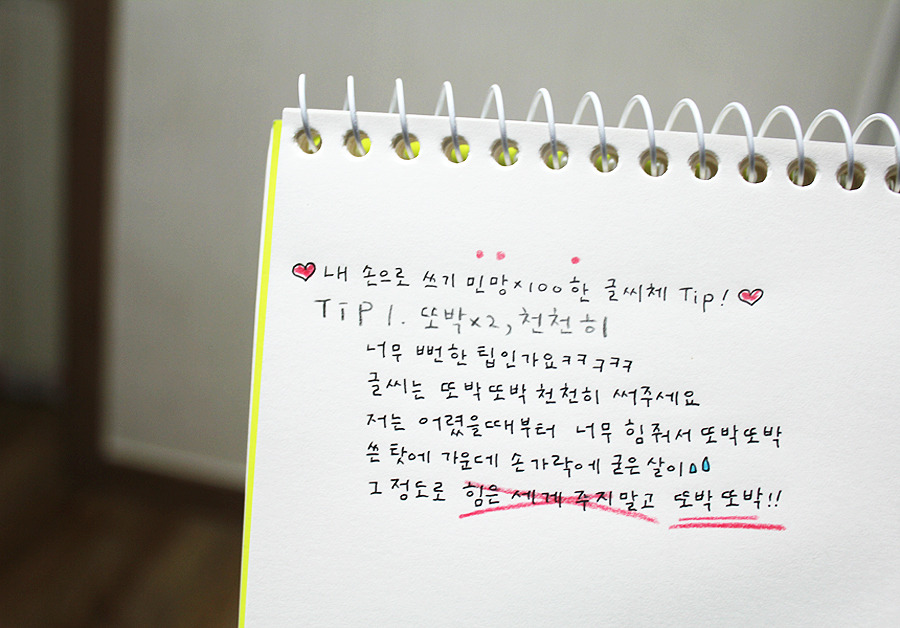 내 손으로 쓰기 민망×100한 글씨체 Tip!
TiP 1. 또박×2, 천천히
너무 뻔한 팁인가요ㅋㅋㅋㅋㅋ
글씨는 또박또박 천천히 써주세요
저는 어렸을때부터 너무 힘줘서 또박또박
쓴 탓에 가운데 손가락에 굳은살이
그정도로 힘은 세게 주지말고 또박또박!!